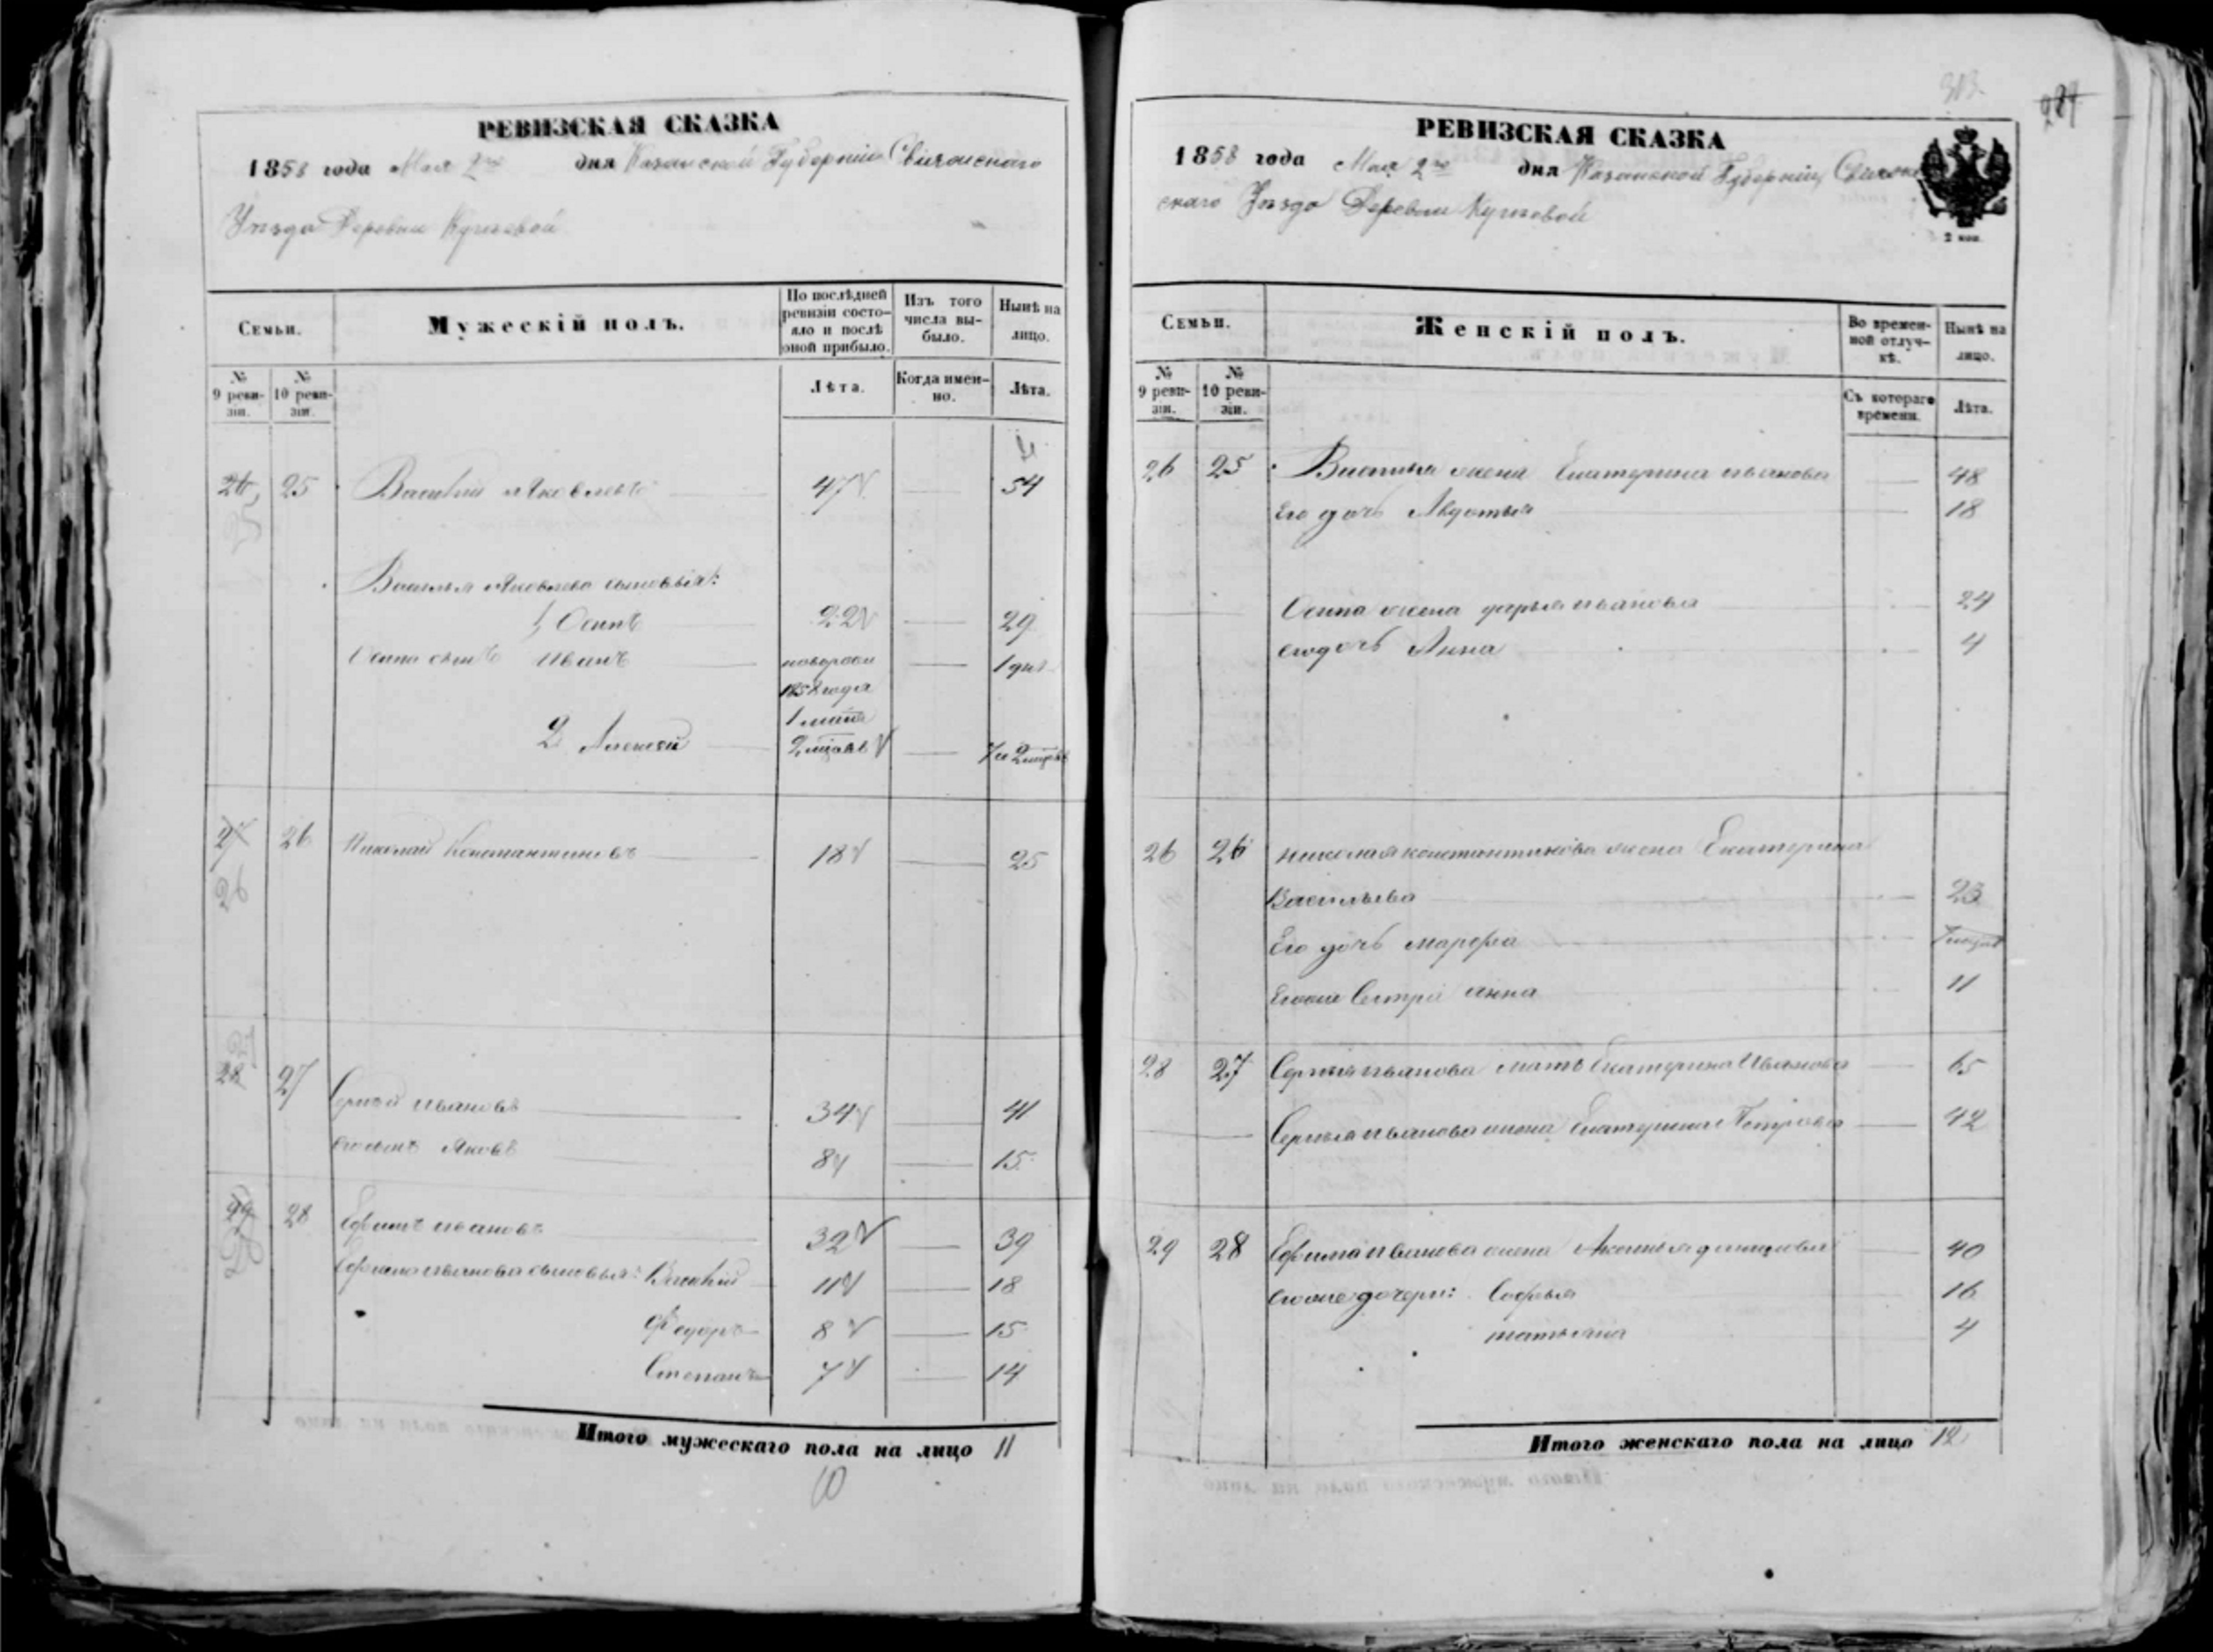 РЕВИЗСКАЯ СКАЗКА
1858 года Мая 2го дня Казанской Губернии Свияжскаго
Уѣзда Деревни
Семьи.
Мужескій полъ.
По послѣдней ревизіи состояло и послѣ оной прибыло.
Изъ того числа выбыло.
Нынѣ на лицо.
№ 9 ревизіи.
№ 10 ревизіи.
Лѣта.
Когда именно.
Лѣта.
26 25 Василій Яковлевъ 47 54
25
Василья Яковлева сыновья:
1, Осипъ 22 29
Осипа сынъ Иванъ новорож 1 дня
1858 года
1 мая
2 Алексей 2 мѣсяц 7 и 2 мѣсяц
27 26 Николай Константиновъ 18 25
26
27
28 27 Сергѣй Ивановъ 34 41
его сынъ Яковъ 8 15
29 28 Ефимъ Ивановъ 32 39
28
Ефима Иванова сыновья: Василій 11 18
Федоръ 8 15
Степанъ 7 14
Итого мужескаго пола на лицо 11
10
313
РЕВИЗСКАЯ СКАЗКА
1858 года Мая 2го дня Казанской Губерніи Свияж
скаго Уѣзда Деревни
2 коп.
Семьи.
Женскій полъ.
Во временной отлучкѣ.
Нынѣ на лицо.
№ 9 ревизіи.
№ 10 ревизіи.
Съ котораго времени.
Лѣта.
26 25 Василья жена Екатерина Иванова 48
Его дочь Авдотья 18
Осипа жена Дарья Иванова 24
его дочь Анна 4
26 26 Николая Константинова жена Екатерина
Васильева 23
Его дочь Марфа 7 мѣсяц
Егоже Сестра Анна 11
28 27 Сергѣя Иванова мать Екатерина Иванова 65
Сергѣя Иванова жена Екатерина Петрова 42
29 28 Ефима Иванова жена 40
егоже дочери: Софья 16
Татьяна 4
Итого женскаго пола на лицо 12